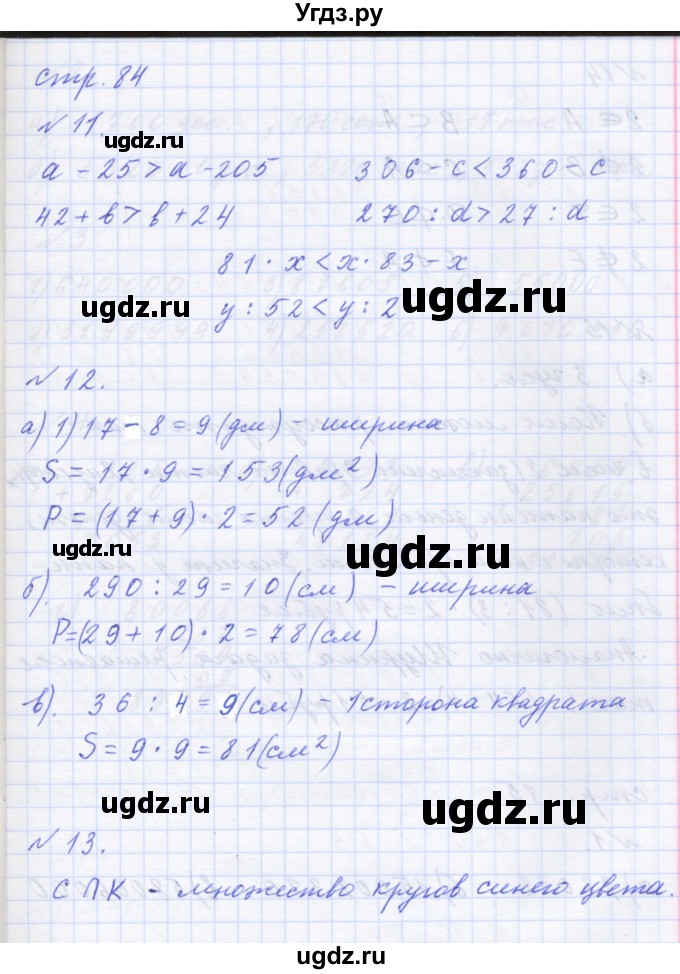 Угдз.ру
стр. 84
№ 11.
ugdz.ru
a - 25 > a - 205 306 - c < 360 - c
42 + b > b + 24 270 : d > 27 : d
81 · x < x · 83 - x
ugdz.ru
ugdz.ru
y : 52 < y : 2
№ 12.
а) 1) 17 - 8 = 9 (дм) - ширина
ugdz.ru
S = 17 · 9 = 153 (дм²)
P = (17 + 9) · 2 = 52 (дм)
ugdz.ru
б). 290 : 29 = 10 (см) - ширина
P = (29 + 10) · 2 = 78 (см)
ugdz.ru
в). 36 : 4 = 9 (см) - 1 сторона квадрата
S = 9 · 9 = 81 (см²)
ugdz.ru
ugdz.ru
№ 13.
С П К - множество кругов синего цвета.
ugdz.ru